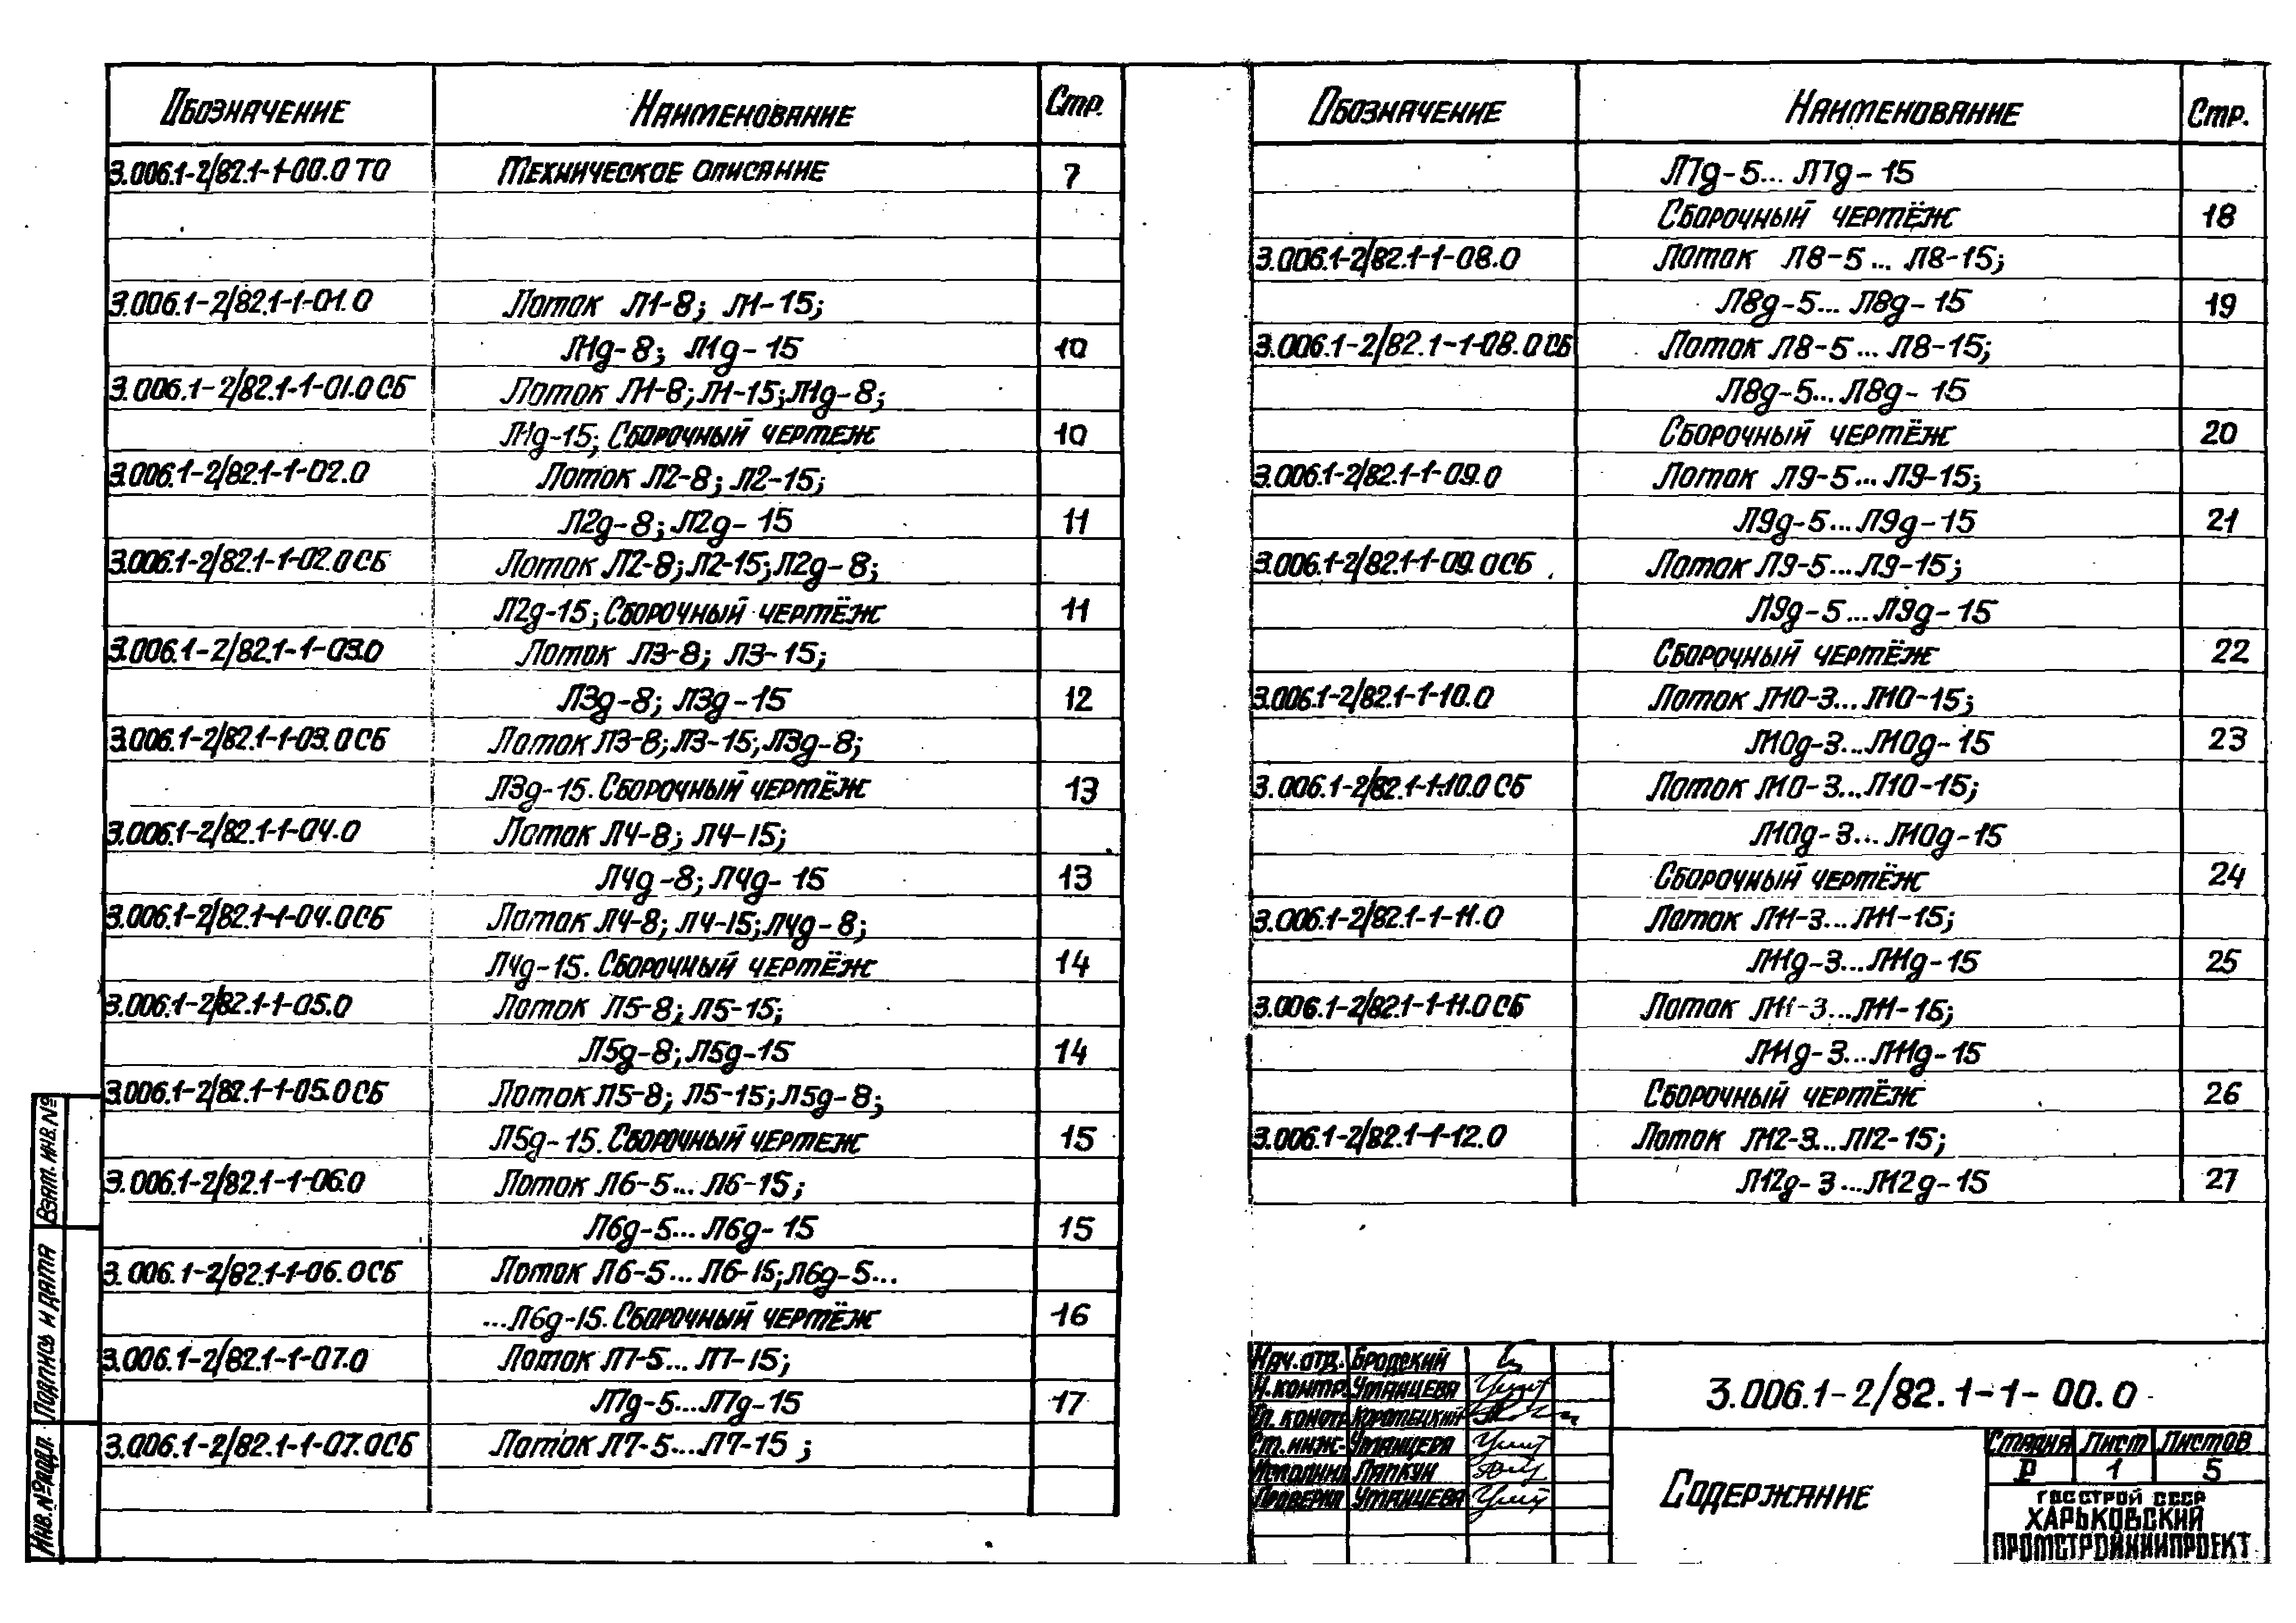 Обозначение Наименование Стр.
3.006.1-2/82.1-1-00.0 ТО Техническое описание 7
3.006.1-2/82.1-1-01.0 Лоток Л1-8; Л1-15;
Л1д-8; Л1д-15 10
3.006.1-2/82.1-1-01.0 СБ Лоток Л1-8; Л1-15; Л1д-8;
Л1д-15; Сборочный чертеж 10
3.006.1-2/82.1-1-02.0 Лоток Л2-8; Л2-15;
Л2д-8; Л2д-15 11
3.006.1-2/82.1-1-02.0 СБ Лоток Л2-8; Л2-15; Л2д-8;
Л2д-15; Сборочный чертёж 11
3.006.1-2/82.1-1-03.0 Лоток Л3-8; Л3-15;
Л3д-8; Л3д-15 12
3.006.1-2/82.1-1-03.0 СБ Лоток Л3-8; Л3-15; Л3д-8;
Л3д-15. Сборочный чертёж 13
3.006.1-2/82.1-1-04.0 Лоток Л4-8; Л4-15;
Л4д-8; Л4д-15 13
3.006.1-2/82.1-1-04.0 СБ Лоток Л4-8; Л4-15; Л4д-8;
Л4д-15. Сборочный чертёж 14
3.006.1-2/82.1-1-05.0 Лоток Л5-8; Л5-15;
Л5д-8; Л5д-15 14
3.006.1-2/82.1-1-05.0 СБ Лоток Л5-8; Л5-15; Л5д-8;
Л5д-15. Сборочный чертеж 15
3.006.1-2/82.1-1-06.0 Лоток Л6-5... Л6-15;
Л6д-5... Л6д-15 15
3.006.1-2/82.1-1-06.0 СБ Лоток Л6-5... Л6-15; Л6д-5...
...Л6д-15. Сборочный чертёж 16
3.006.1-2/82.1-1-07.0 Лоток Л7-5... Л7-15;
Л7д-5...Л7д-15 17
3.006.1-2/82.1-1-07.0 СБ Лоток Л7-5...Л7-15;
Обозначение Наименование Стр.
Л7д-5... Л7д-15
Сборочный чертёж 18
3.006.1-2/82.1-1-08.0 Лоток Л8-5... Л8-15;
Л8д-5... Л8д-15 19
3.006.1-2/82.1-1-08.0 СБ Лоток Л8-5... Л8-15;
Л8д-5... Л8д-15
Сборочный чертёж 20
3.006.1-2/82.1-1-09.0 Лоток Л9-5... Л9-15;
Л9д-5...Л9д-15 21
3.006.1-2/82.1-1-09.0 СБ Лоток Л9-5...Л9-15;
Л9д-5...Л9д-15
Сборочный чертёж 22
3.006.1-2/82.1-1-10.0 Лоток Л10-3...Л10-15;
Л10д-3...Л10д-15 23
3.006.1-2/82.1-1-10.0 СБ Лоток Л10-3...Л10-15;
Л10д-3...Л10д-15
Сборочный чертёж 24
3.006.1-2/82.1-1-11.0 Лоток Л11-3...Л11-15;
Л11д-3...Л11д-15 25
3.006.1-2/82.1-1-11.0 СБ Лоток Л11-3...Л11-15;
Л11д-3...Л11д-15
Сборочный чертёж 26
3.006.1-2/82.1-1-12.0 Лоток Л12-3...Л12-15;
Л12д-3...Л12д-15 27
Взят. инв. №
Подпись и дата
Инв. № подл.
Нач. отд. Бродский
Н. контр. Уманцева
Гл. констр. Коротецкий
Ст. инж. Уманцева
Исполнил Ляпкун
Проверил Уманцева
3.006.1-2/82.1-1-00.0
Содержание
Стадия Лист Листов
Р 1 5
ГОССТРОЙ СССР
ХАРЬКОВСКИЙ
ПРОМСТРОЙНИИПРОЕКТ